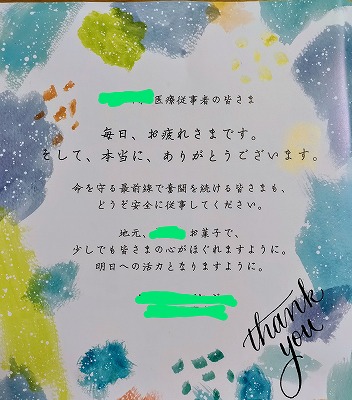 医療従事者の皆さま
毎日、お疲れさまです。
そして、本当に、ありがとうございます。
命を守る最前線で奮闘を続ける皆さまも、
どうぞ安全に従事してください。
地元、 お菓子で、
少しでも皆さまの心がほぐれますように。
明日への活力となりますように。
thank
you